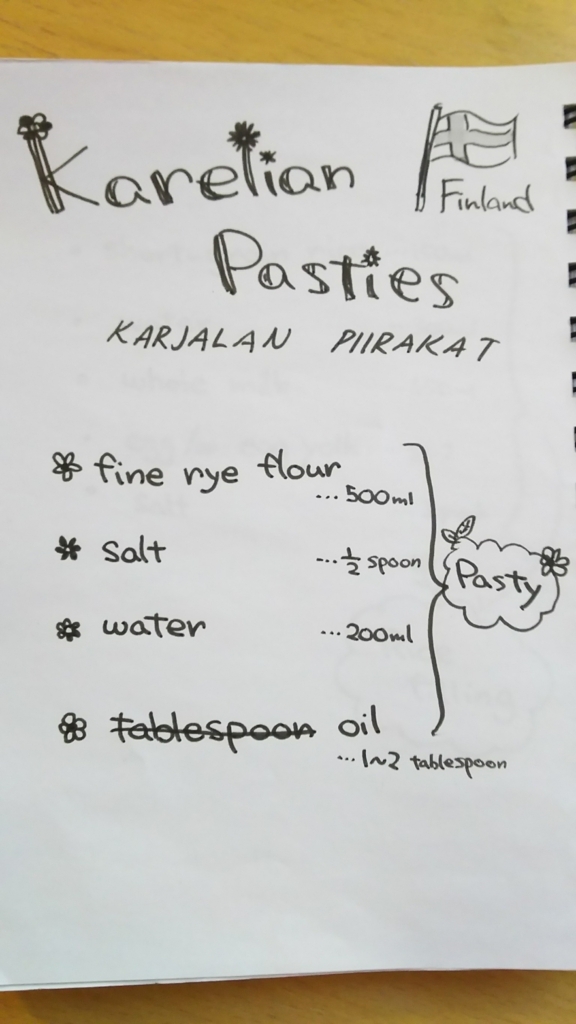 Karelian
Finland
Pasties
KARJALAN PIIRAKAT
fine rye flour
...500ml
salt ...½ spoon
Pasty
water ...200ml
tablespoon oil
...1~2 tablespoon